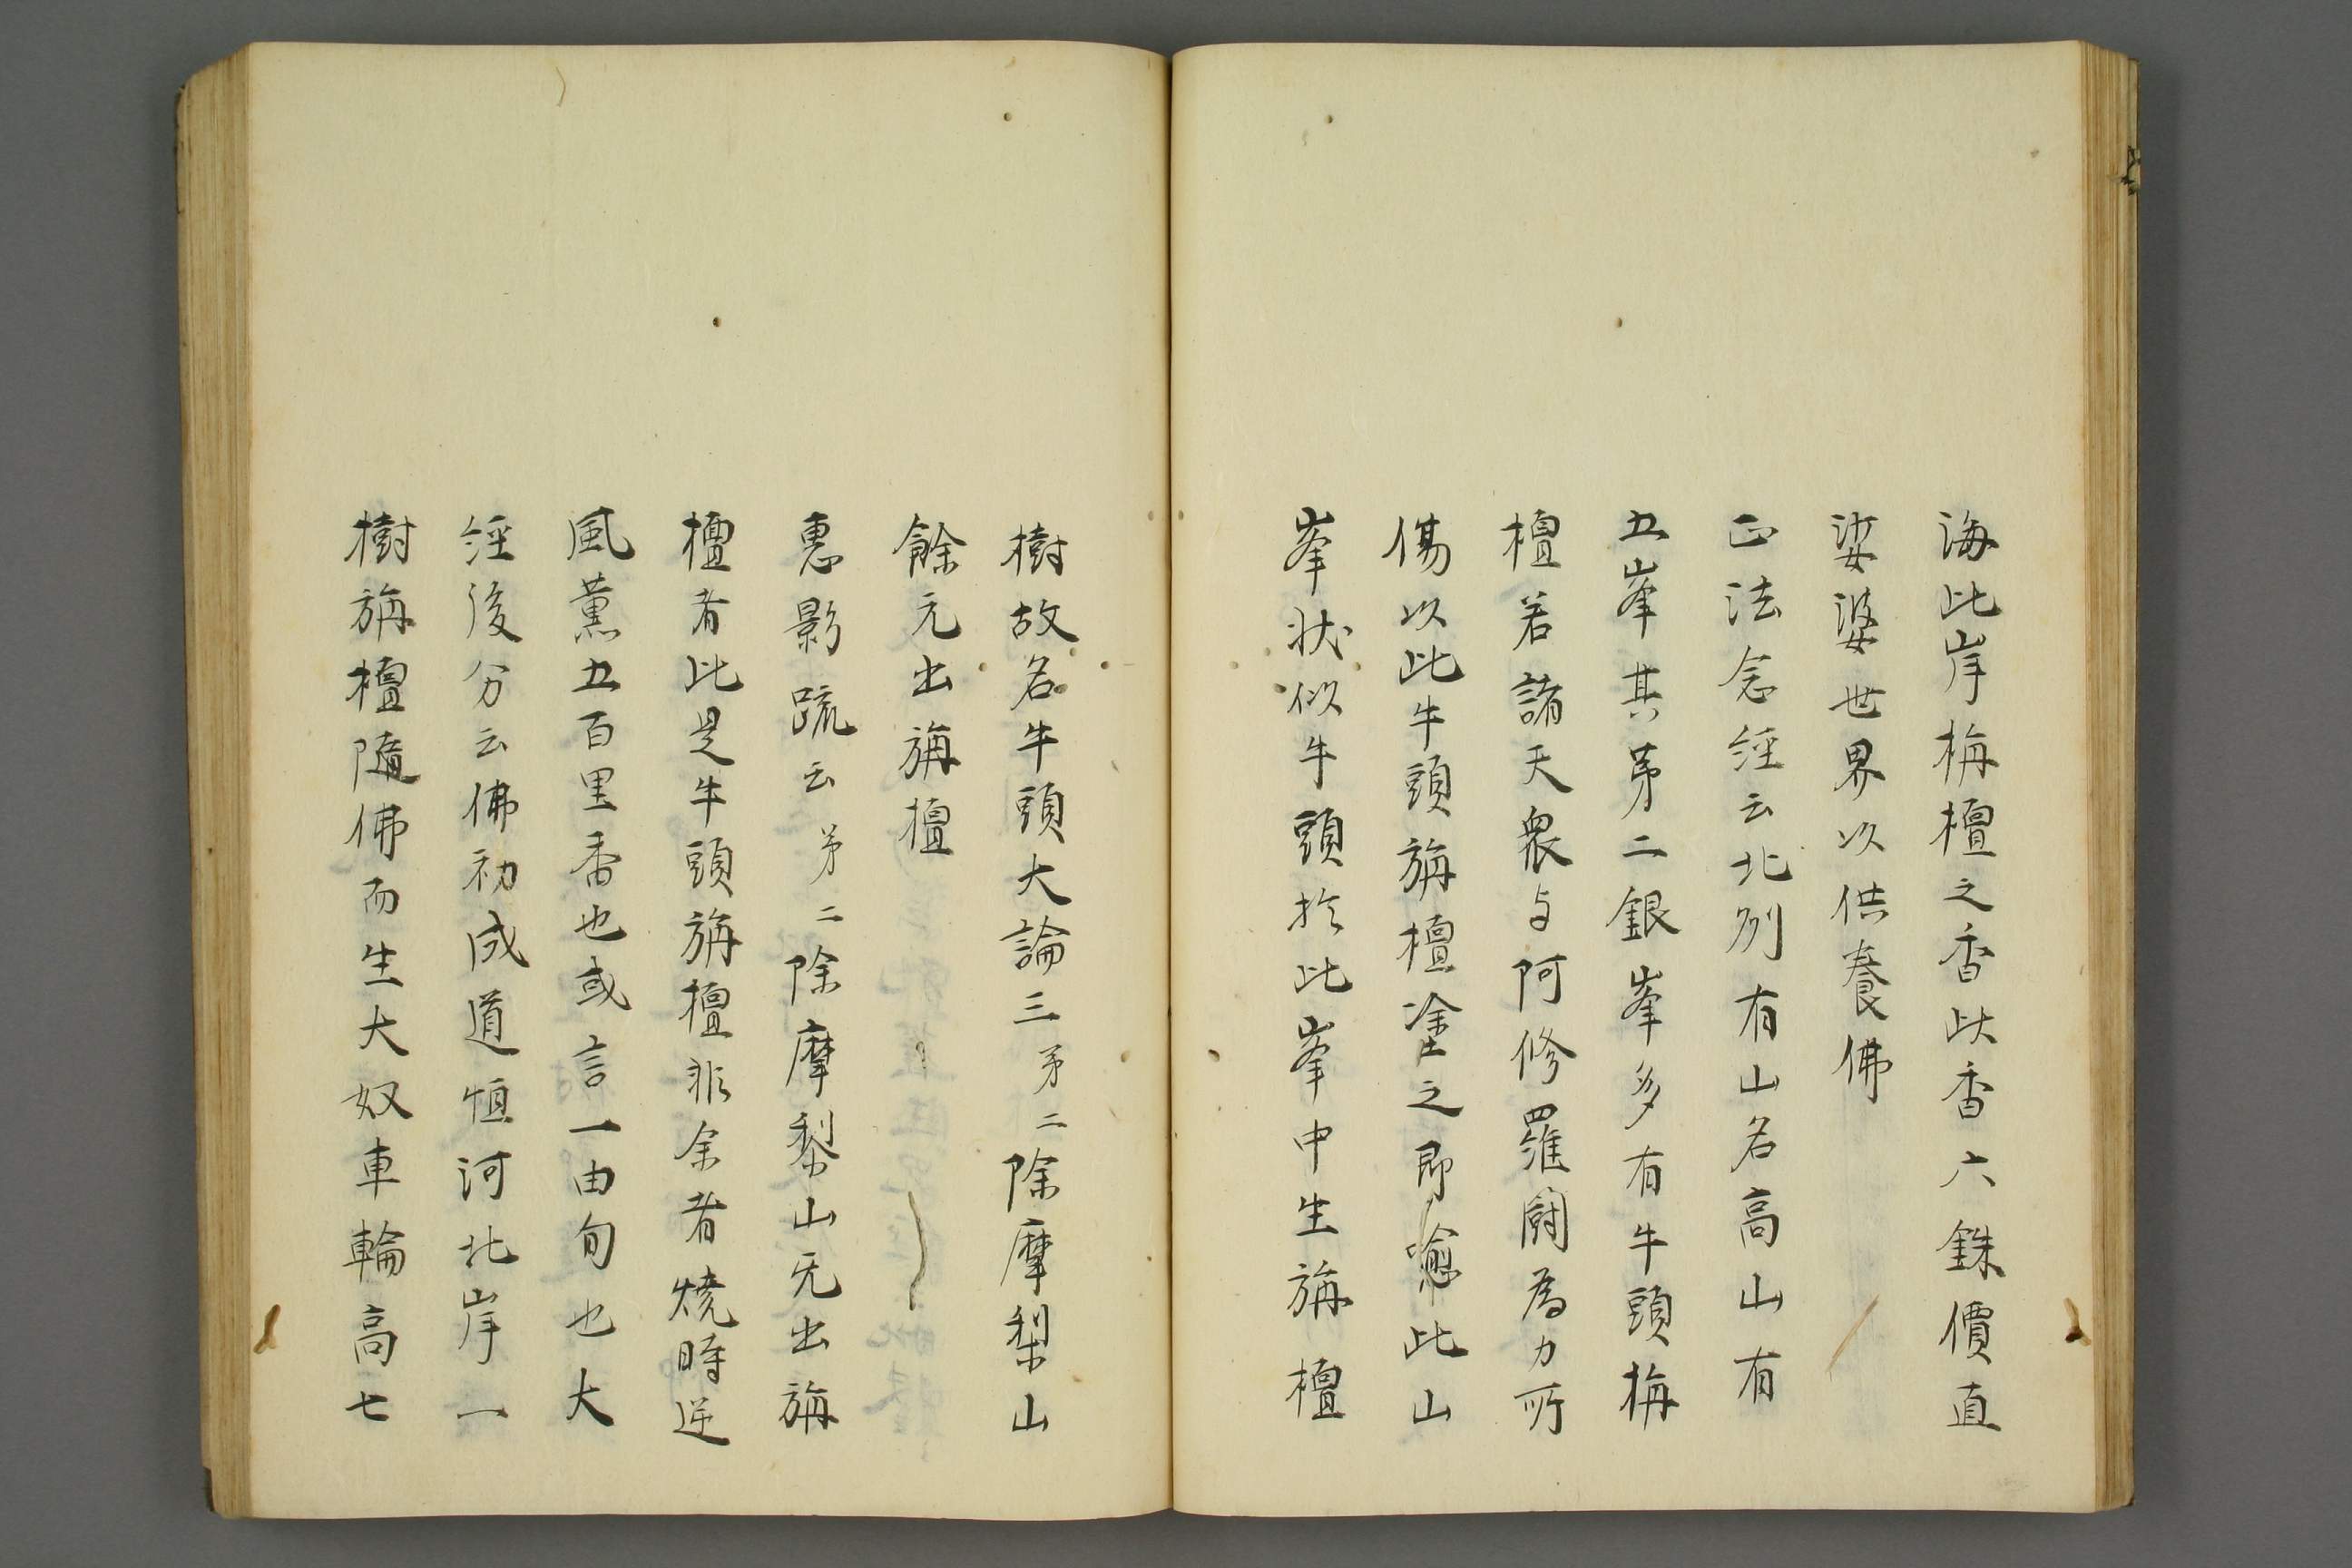 海此岸栴檀之香此香六銖價直
娑婆世界以供養佛
正法念經云北列有山名高山有
五峯其第二銀峯多有牛頭栴
檀若諸天衆与阿修羅鬪為力所
傷以此牛頭旃檀塗之即愈此山
峯状似牛頭於此峯中生旃檀
樹故名牛頭大論三第二除摩梨山
餘无出旃檀
惠影䟽云第二除摩黎山无出旃
檀者此是牛頭旃檀非余者燒時逆
風薫五百里香也或言一由旬也大
經後分云佛初成道恒河北岸一
樹旃檀隨佛而生大如車輪高七